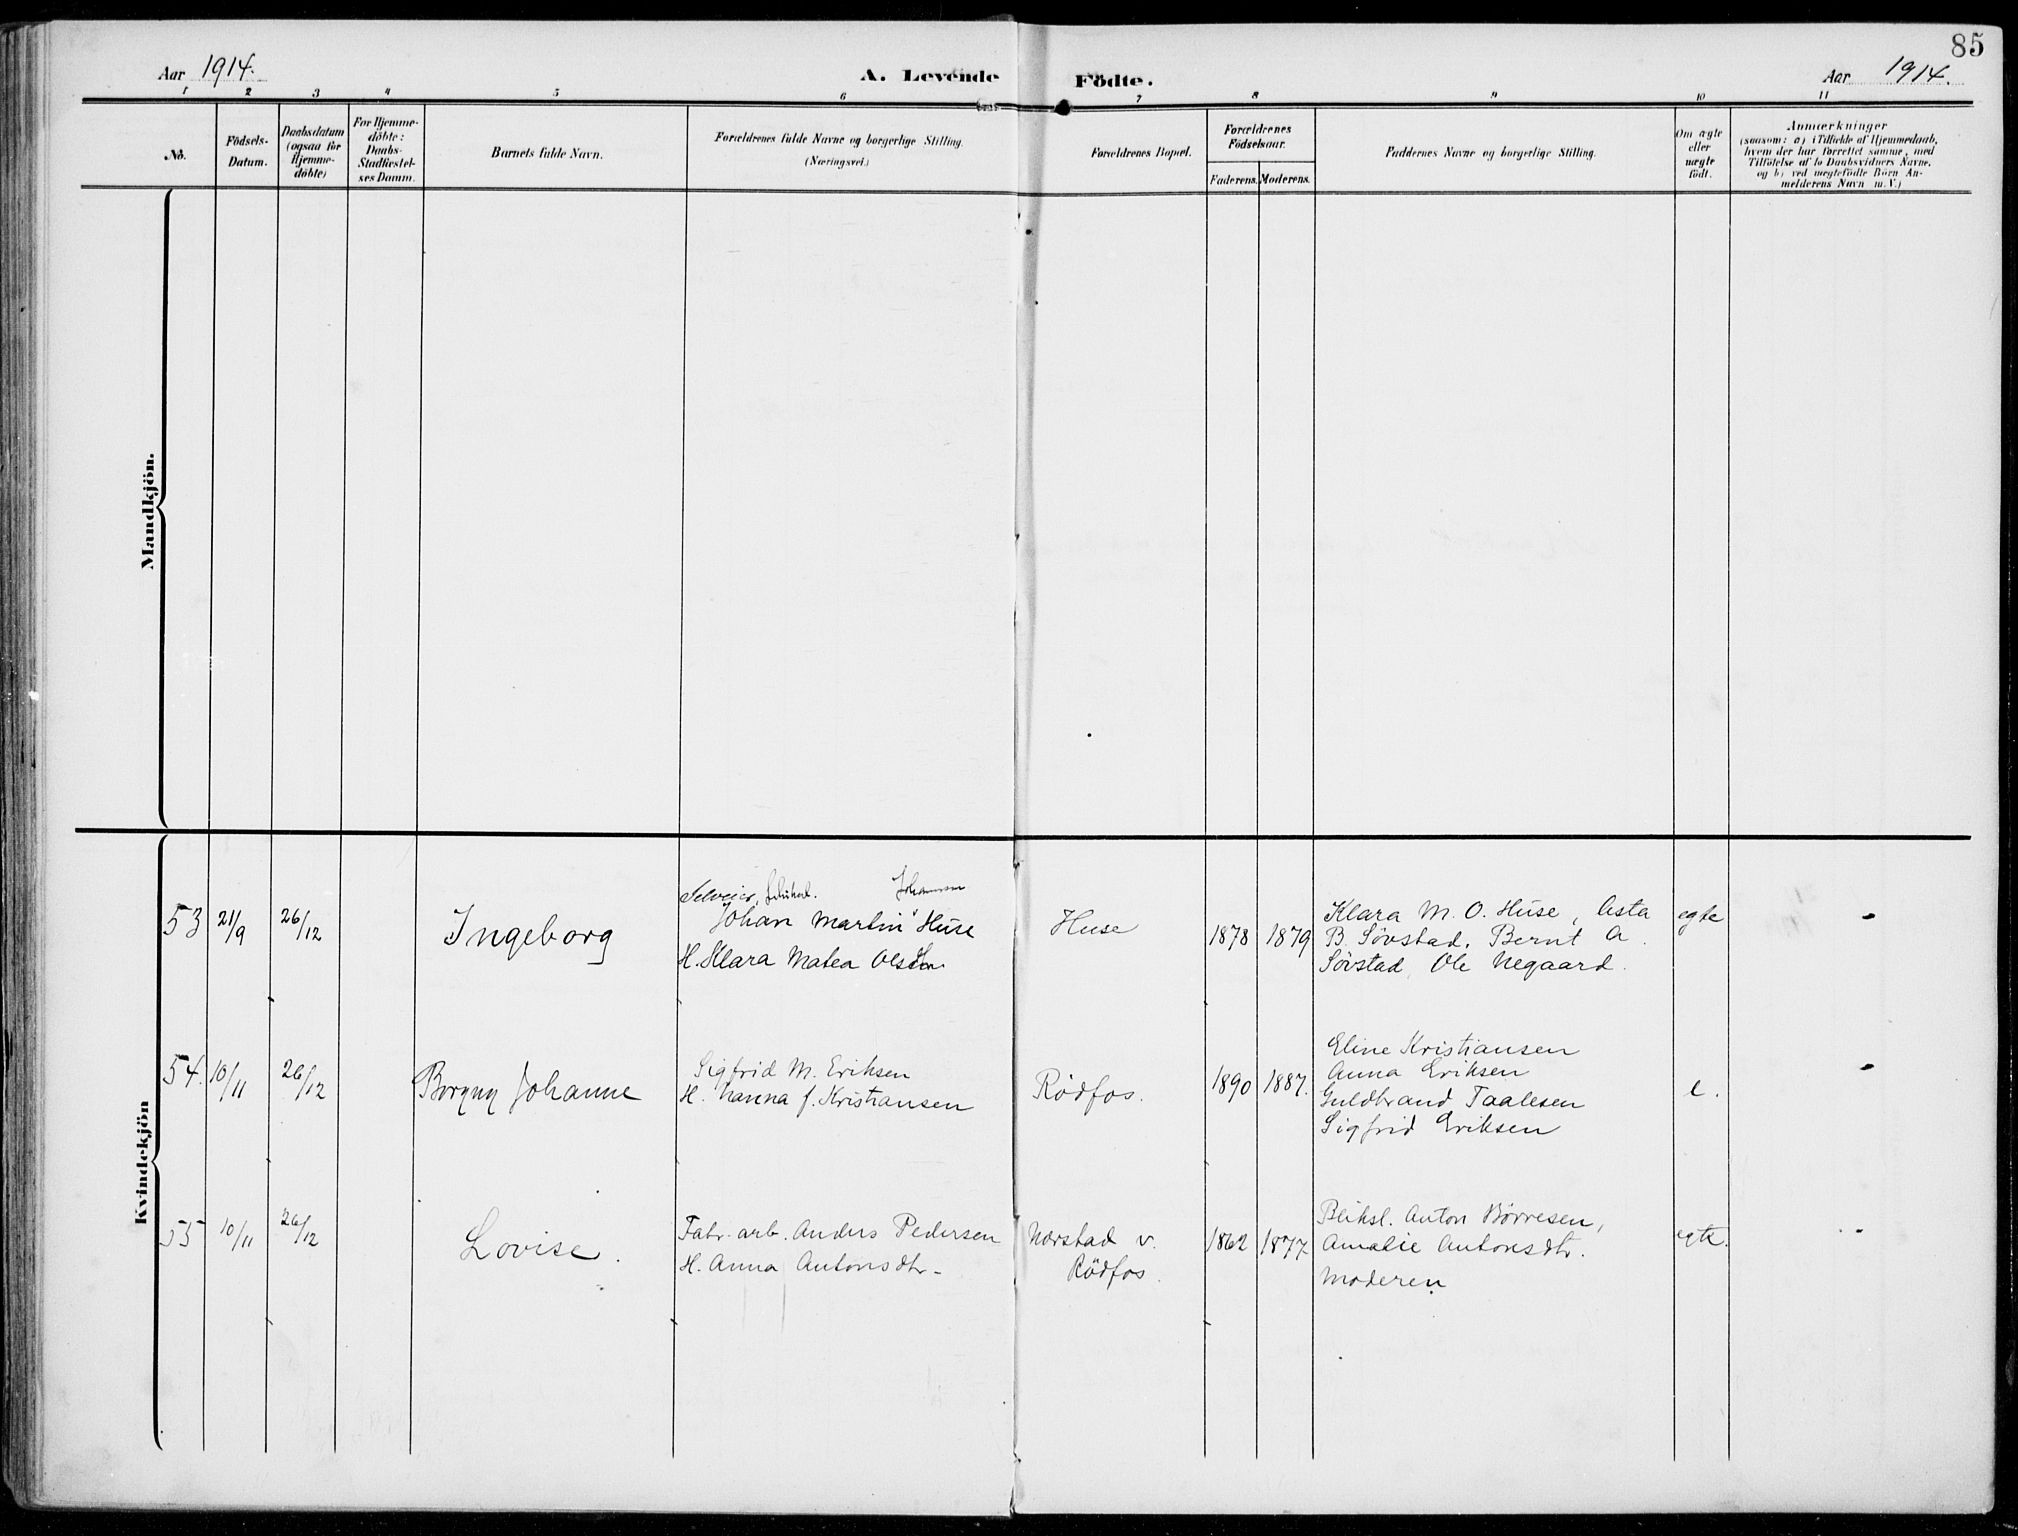 85
Aar 1914.
A. Levende Födte.
Aar 1914.
1 2 3 4 5 6 7 8 9 10 11
No.
Födsels-
Datum.
Daabsdatum
(ogsaa for
Hjemme-
döbte)
For Hjemme-
döbte:
Daabs-
Stadfæstel-
ses Datum.
Barnets fulde Navn.
Forældrenes fulde Navne og borgerlige Stilling.
(Næringsvei.)
Forældrenes Bopæl.
Forældrenes
Födselsaar.
Faderens. Moderens.
Faddernes Navne og borgerlige Stilling.
Om ægte
eller
uægte
födt.
Anmærkninger
(saasom: a) i Tilfælde af Hjemmedaab,
hvem der har forrettet samme, med
Tilföielse af to Daabsvidners Navne.
og b) ved uægtefödte Börn An-
melderens Navn m. V.)
Mandkjön.
Kvindekjön
53
21/9
26/12
Ingeborg
Selveier, Johansen
Johan Martin Huse
H. Klara Matea
Huse
1878
1879
Klara M. O. Huse, Asta
B. Sövstad, Bernt A.
Sövstad, Ole Negaard.
egte
-
54.
10/11
26/12
Borgny Johanne
Sigfrid M. Eriksen
H. Nanna f. Kristiansen
Rödfos.
1890
1887.
Eline Kristiansen
Anna Eriksen
Guldbrand Taalesen
Sigfrid Eriksen
e.
-
55
10/11
26/12
Lovise.
Fabr. arb. Anders Pedersen
H. Anna Antonsdtr.
Nærstad v.
Rödfos.
1862
1877
Bliksl. Anton Börresen,
Amalie Antonsdtr.
Moderen
egte.
-